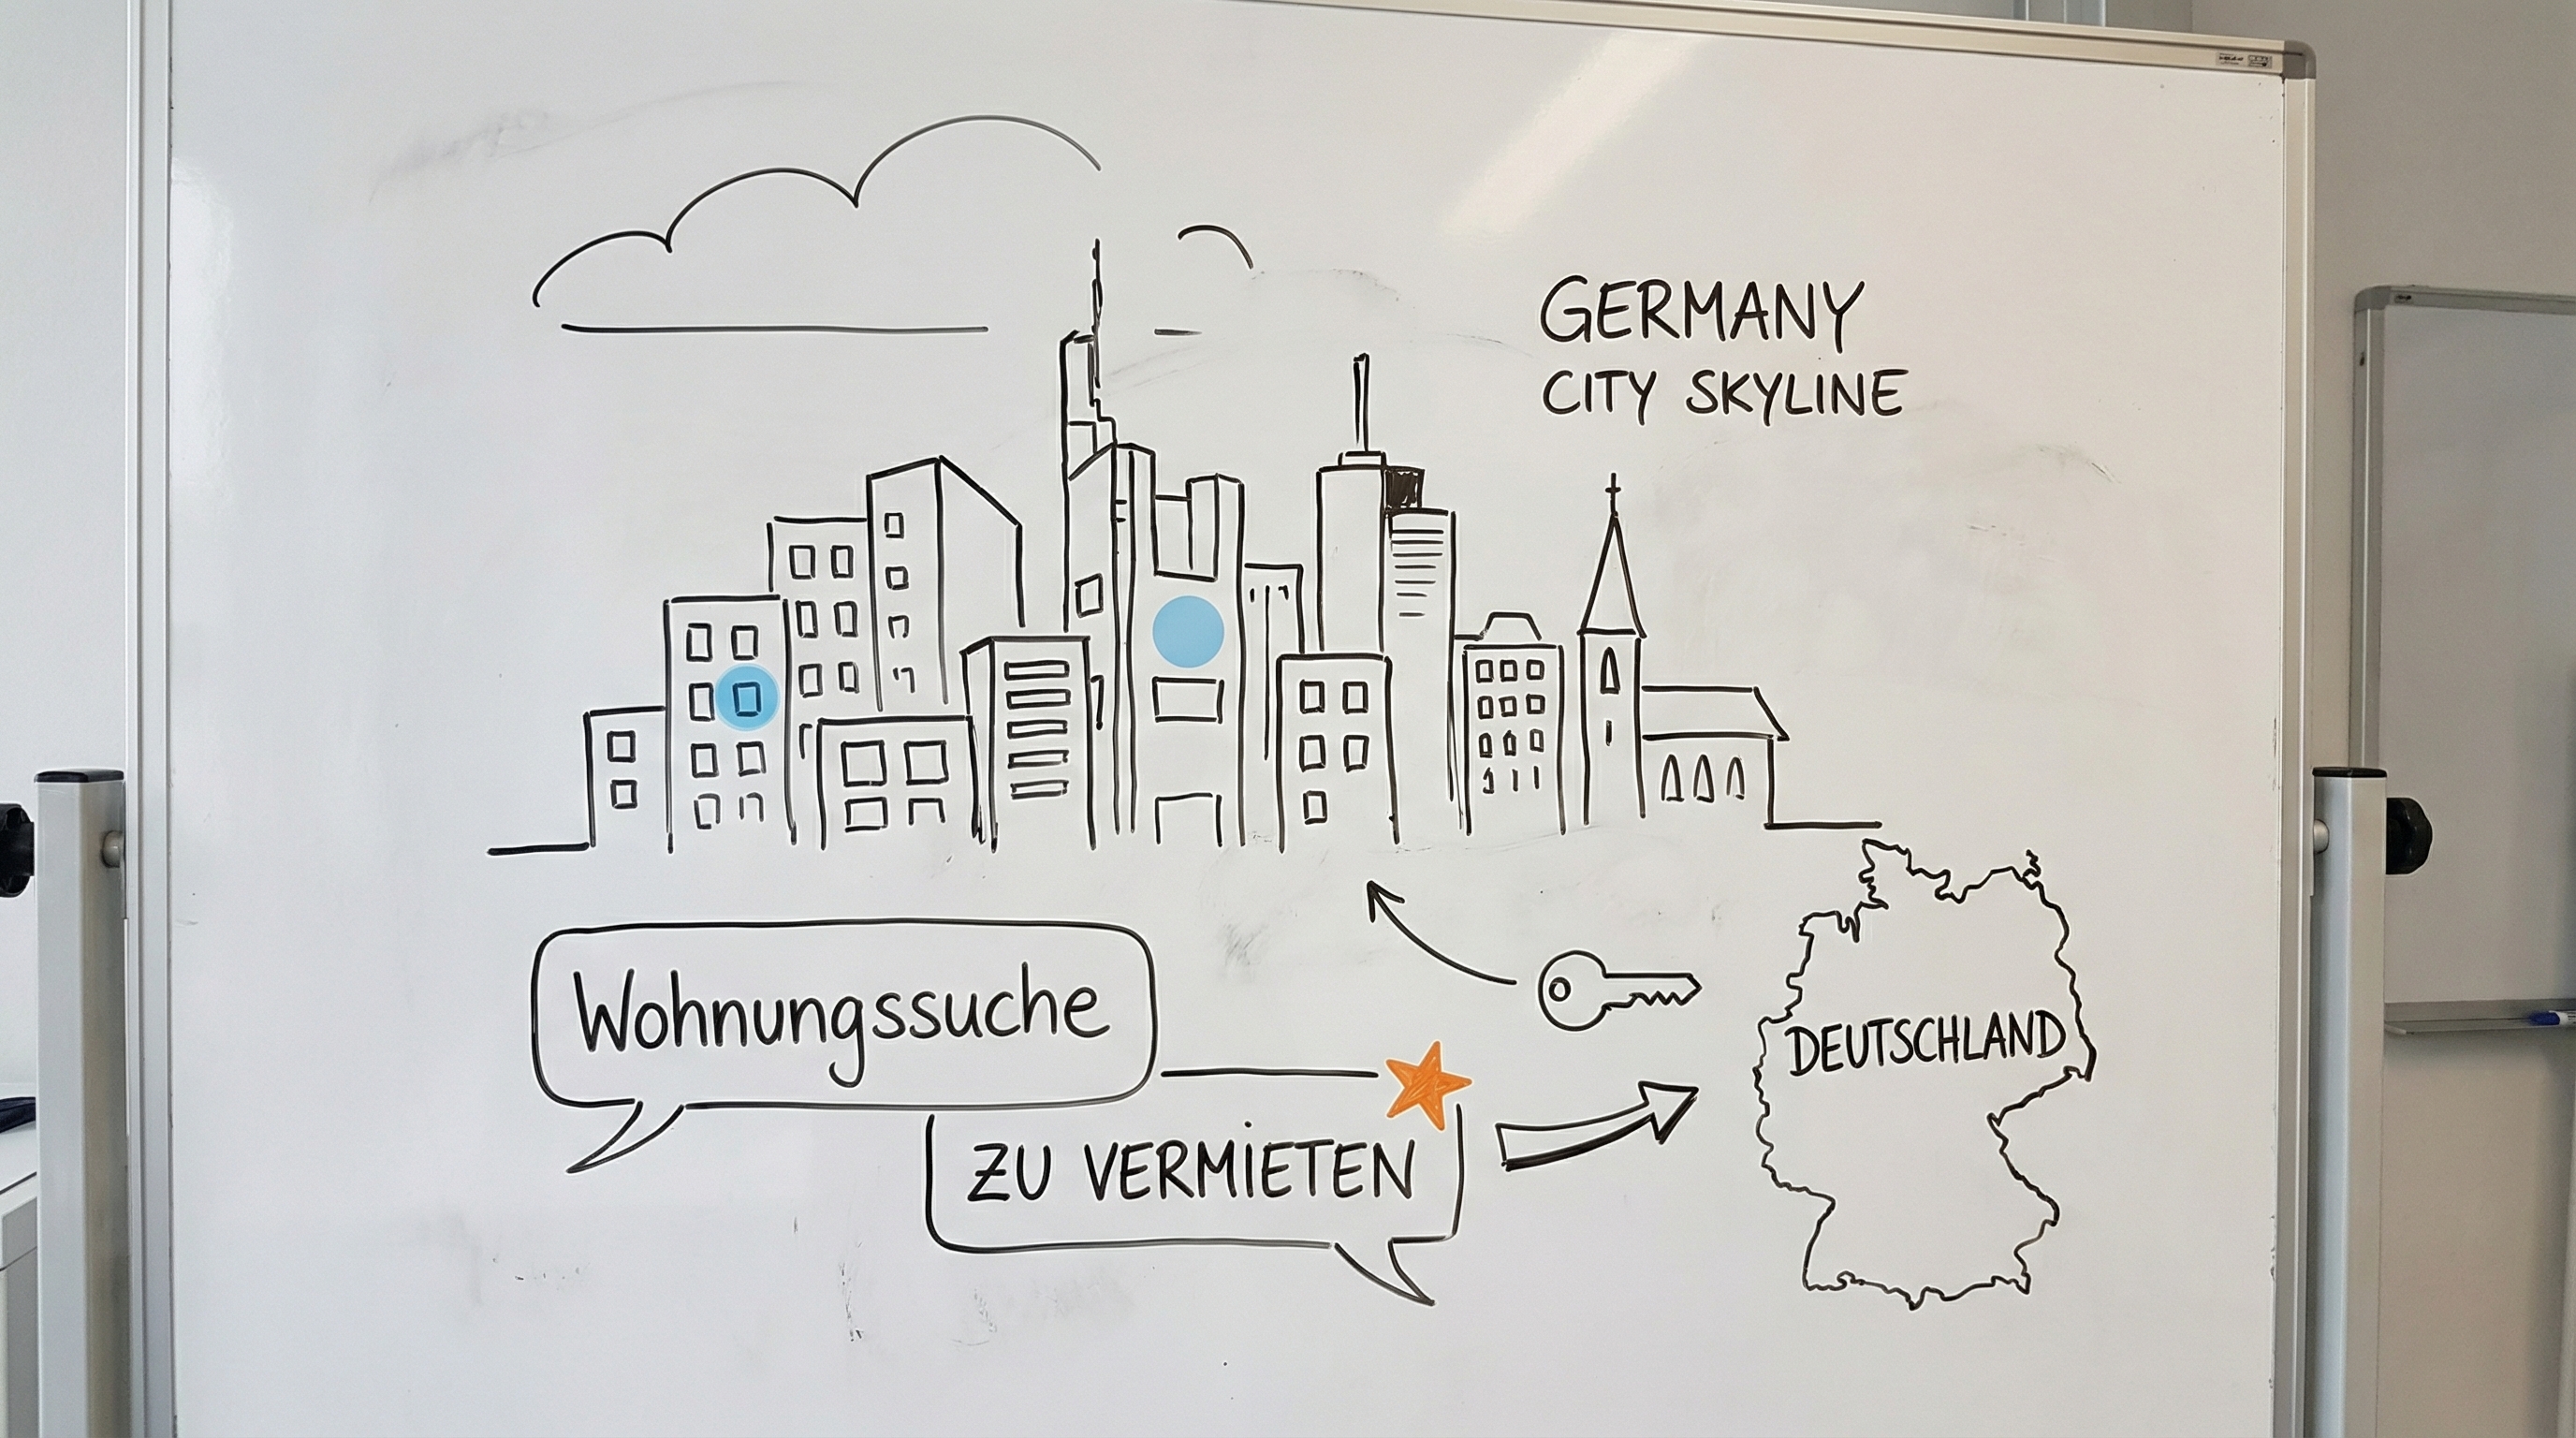 GERMANY
CITY SKYLINE
Wohnungssuche
ZU VERMIETEN
DEUTSCHLAND